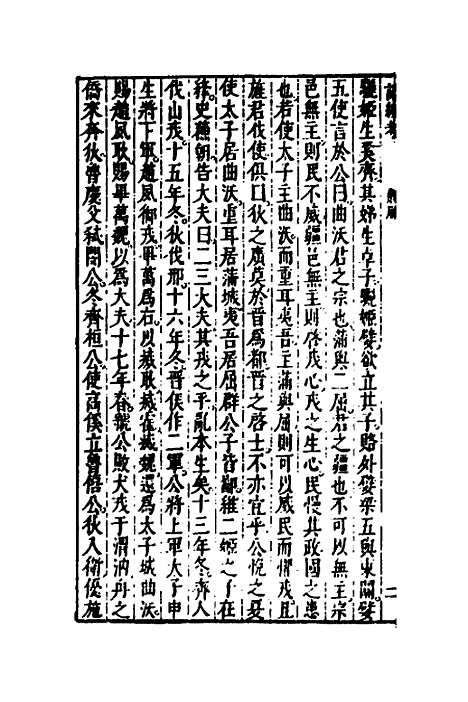 驪姬生奚齊其娣生卓子驪姬嬖欲立其子賂外嬖梁五與東關嬖
五使言於公曰曲沃君之宗也蒲與二屈君之疆也不可以無主宗
邑無主則民不威疆邑無主則啓戎心戎之生心民慢其政國之患
也若使太子主曲沃而重耳夷吾主蒲與屈則可以威民而懼戎且
旌君伐使俱曰狄之廣莫於晉爲都晉之啓土不亦宜乎公悅之夏
使太子居曲沃重耳居蒲城夷吾居屈群公子皆鄙惟二姬之子在
絳史蘇朝告大夫曰二三大夫其戒之乎亂本生矣十三年冬齊人
伐山戎十五年冬狄伐邢十六年冬晉侯作二軍公將上軍太子申
生將下軍趙夙御戎畢萬爲右以滅耿滅霍滅魏還爲太子城曲沃
賜趙夙耿賜畢萬魏以爲大夫十七年春虢公敗犬戎于渭汭丹之
僑來奔秋魯慶父弒閔公冬齊桓公使高傒立魯僖公狄入衛優施
二